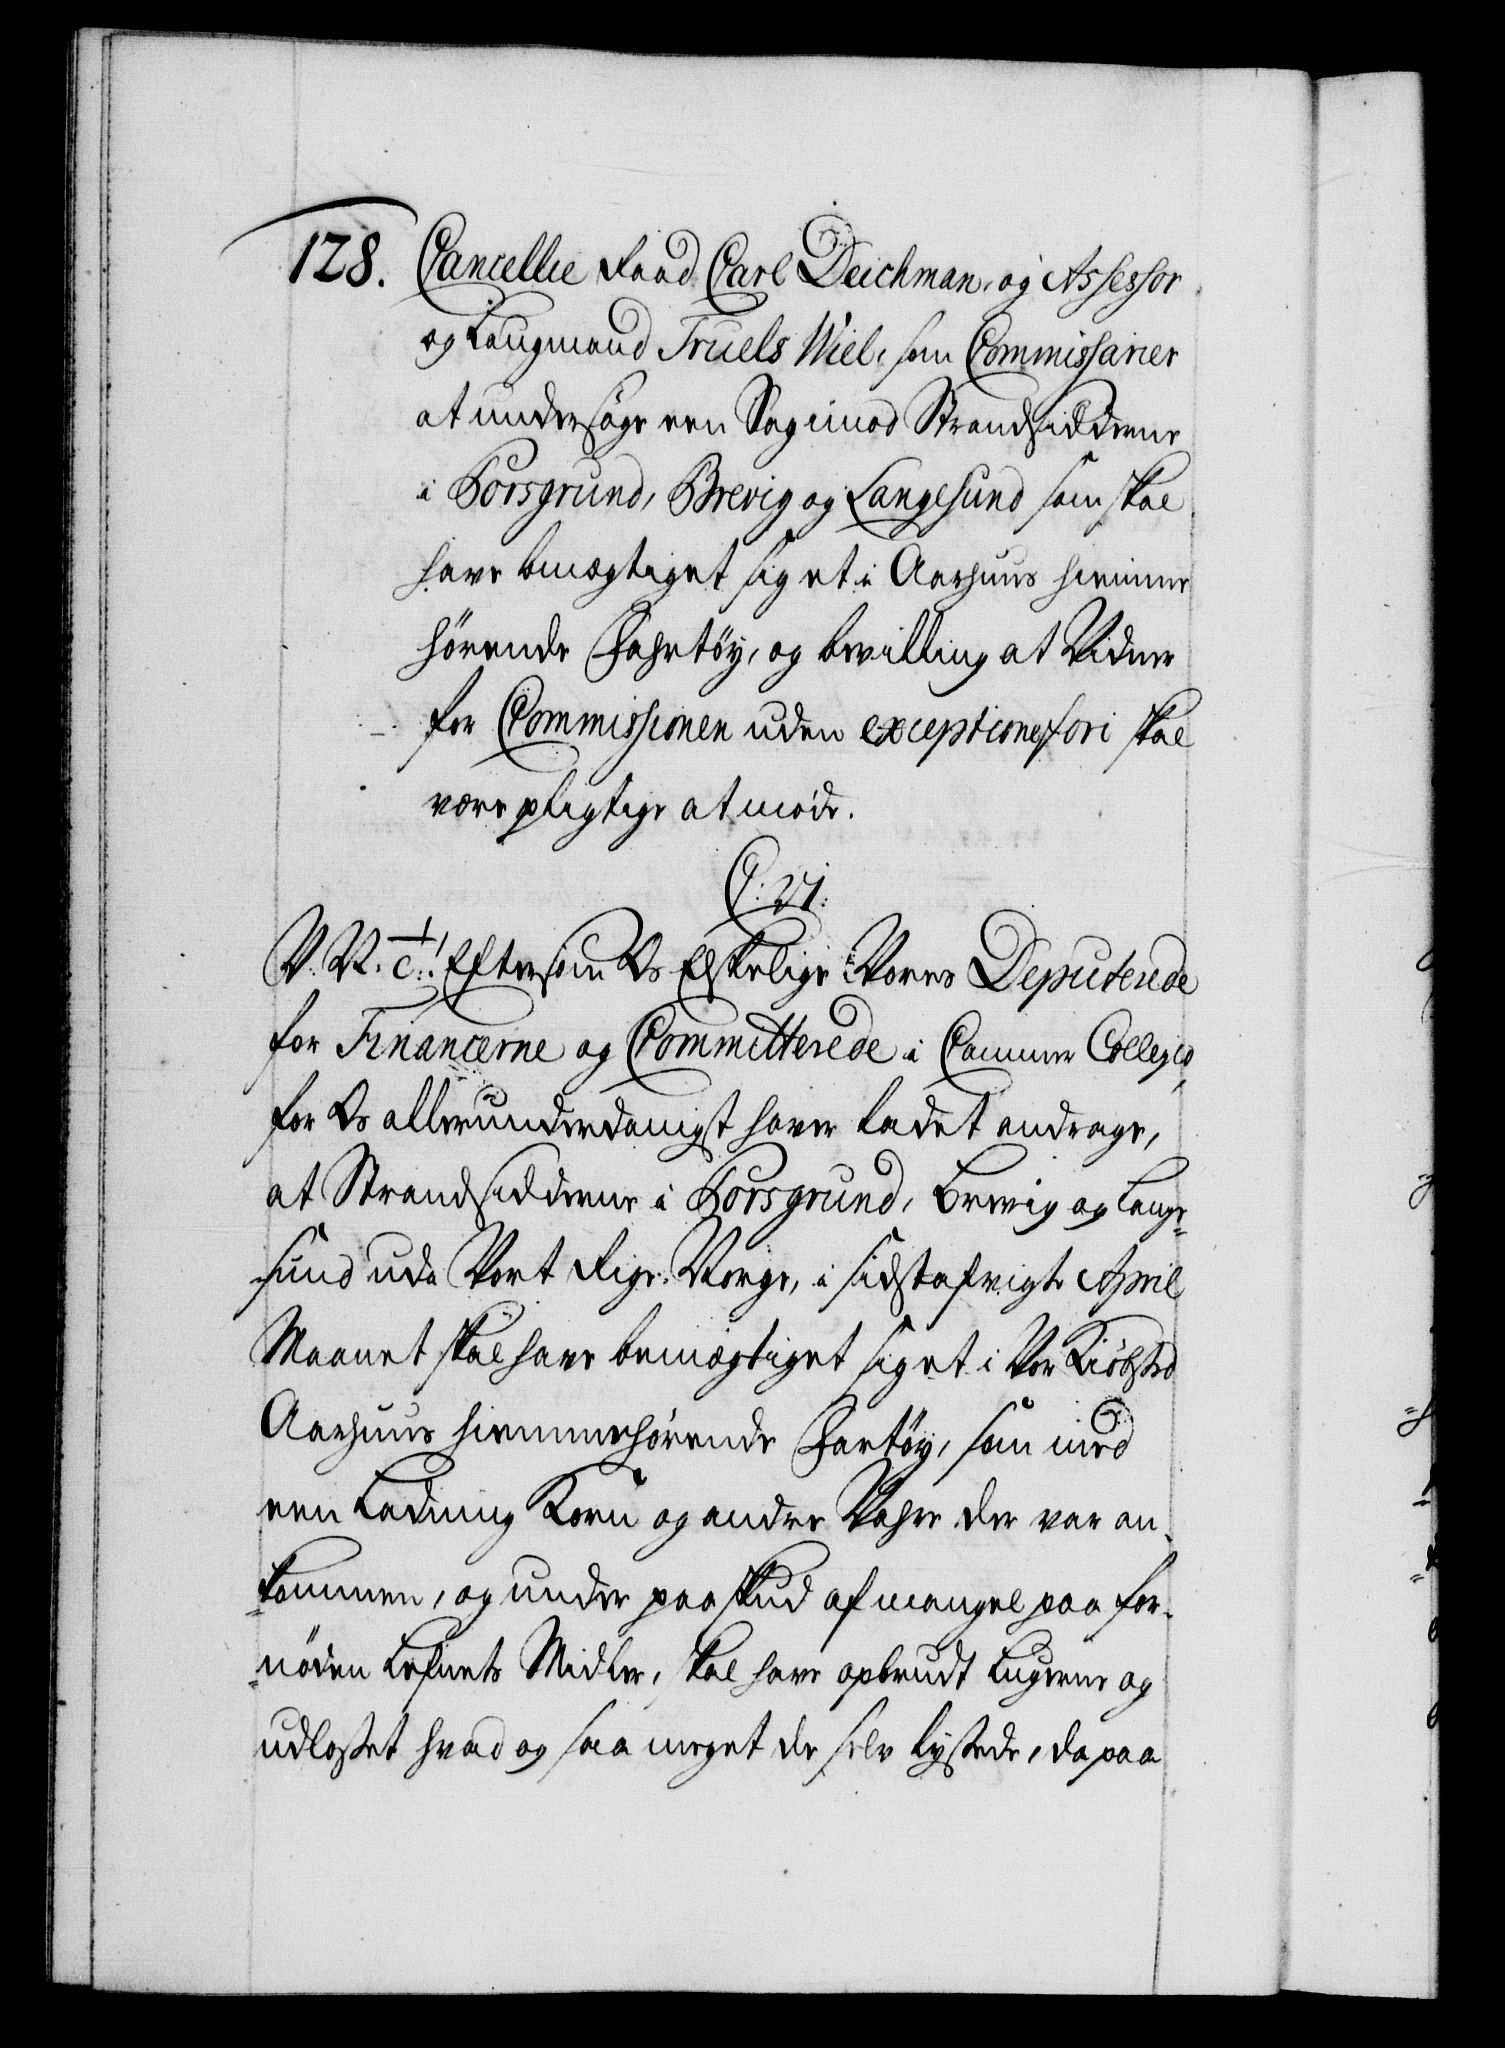 128. Cancellie Raad Carl Deichman, og Assessor
og Laugmand Truels Wiel, som Commissarier
at undersöge een Sag imod Strandsidderne
i Porsgrund, Brevig og Langesund som skal
have bemægtiget sig et i Aarhuus hiemme
hörende Fahrtöy, og bevilling at Vidner
for Commissionen uden exceptione fori skal
være pligtige at möde.
C: VI:
V. V. C: Eftersom Os Elskelige Vores Deputerede
for Financerne og Committerede i Cammer Collegio,
for Os allerunderdanigst haver ladet andrage,
at Strandsidderne i Porsgrund, Brevig og Lange=
sund udi Vort Rige Norge, i sidstafvigte April
Maanet skal have bemægtiget sig et i Vor Kiöbsted
Aarhuus hiemmehörende Fartöy, som med
een Ladning Korn og andre Vahre der var an=
=kommen, og under paaskud af mangel paa for=
=nöden Lefnets Midler, skal have opbrudt Lugerne og
udlosset hvad og saa meget de selv lystede, da paa